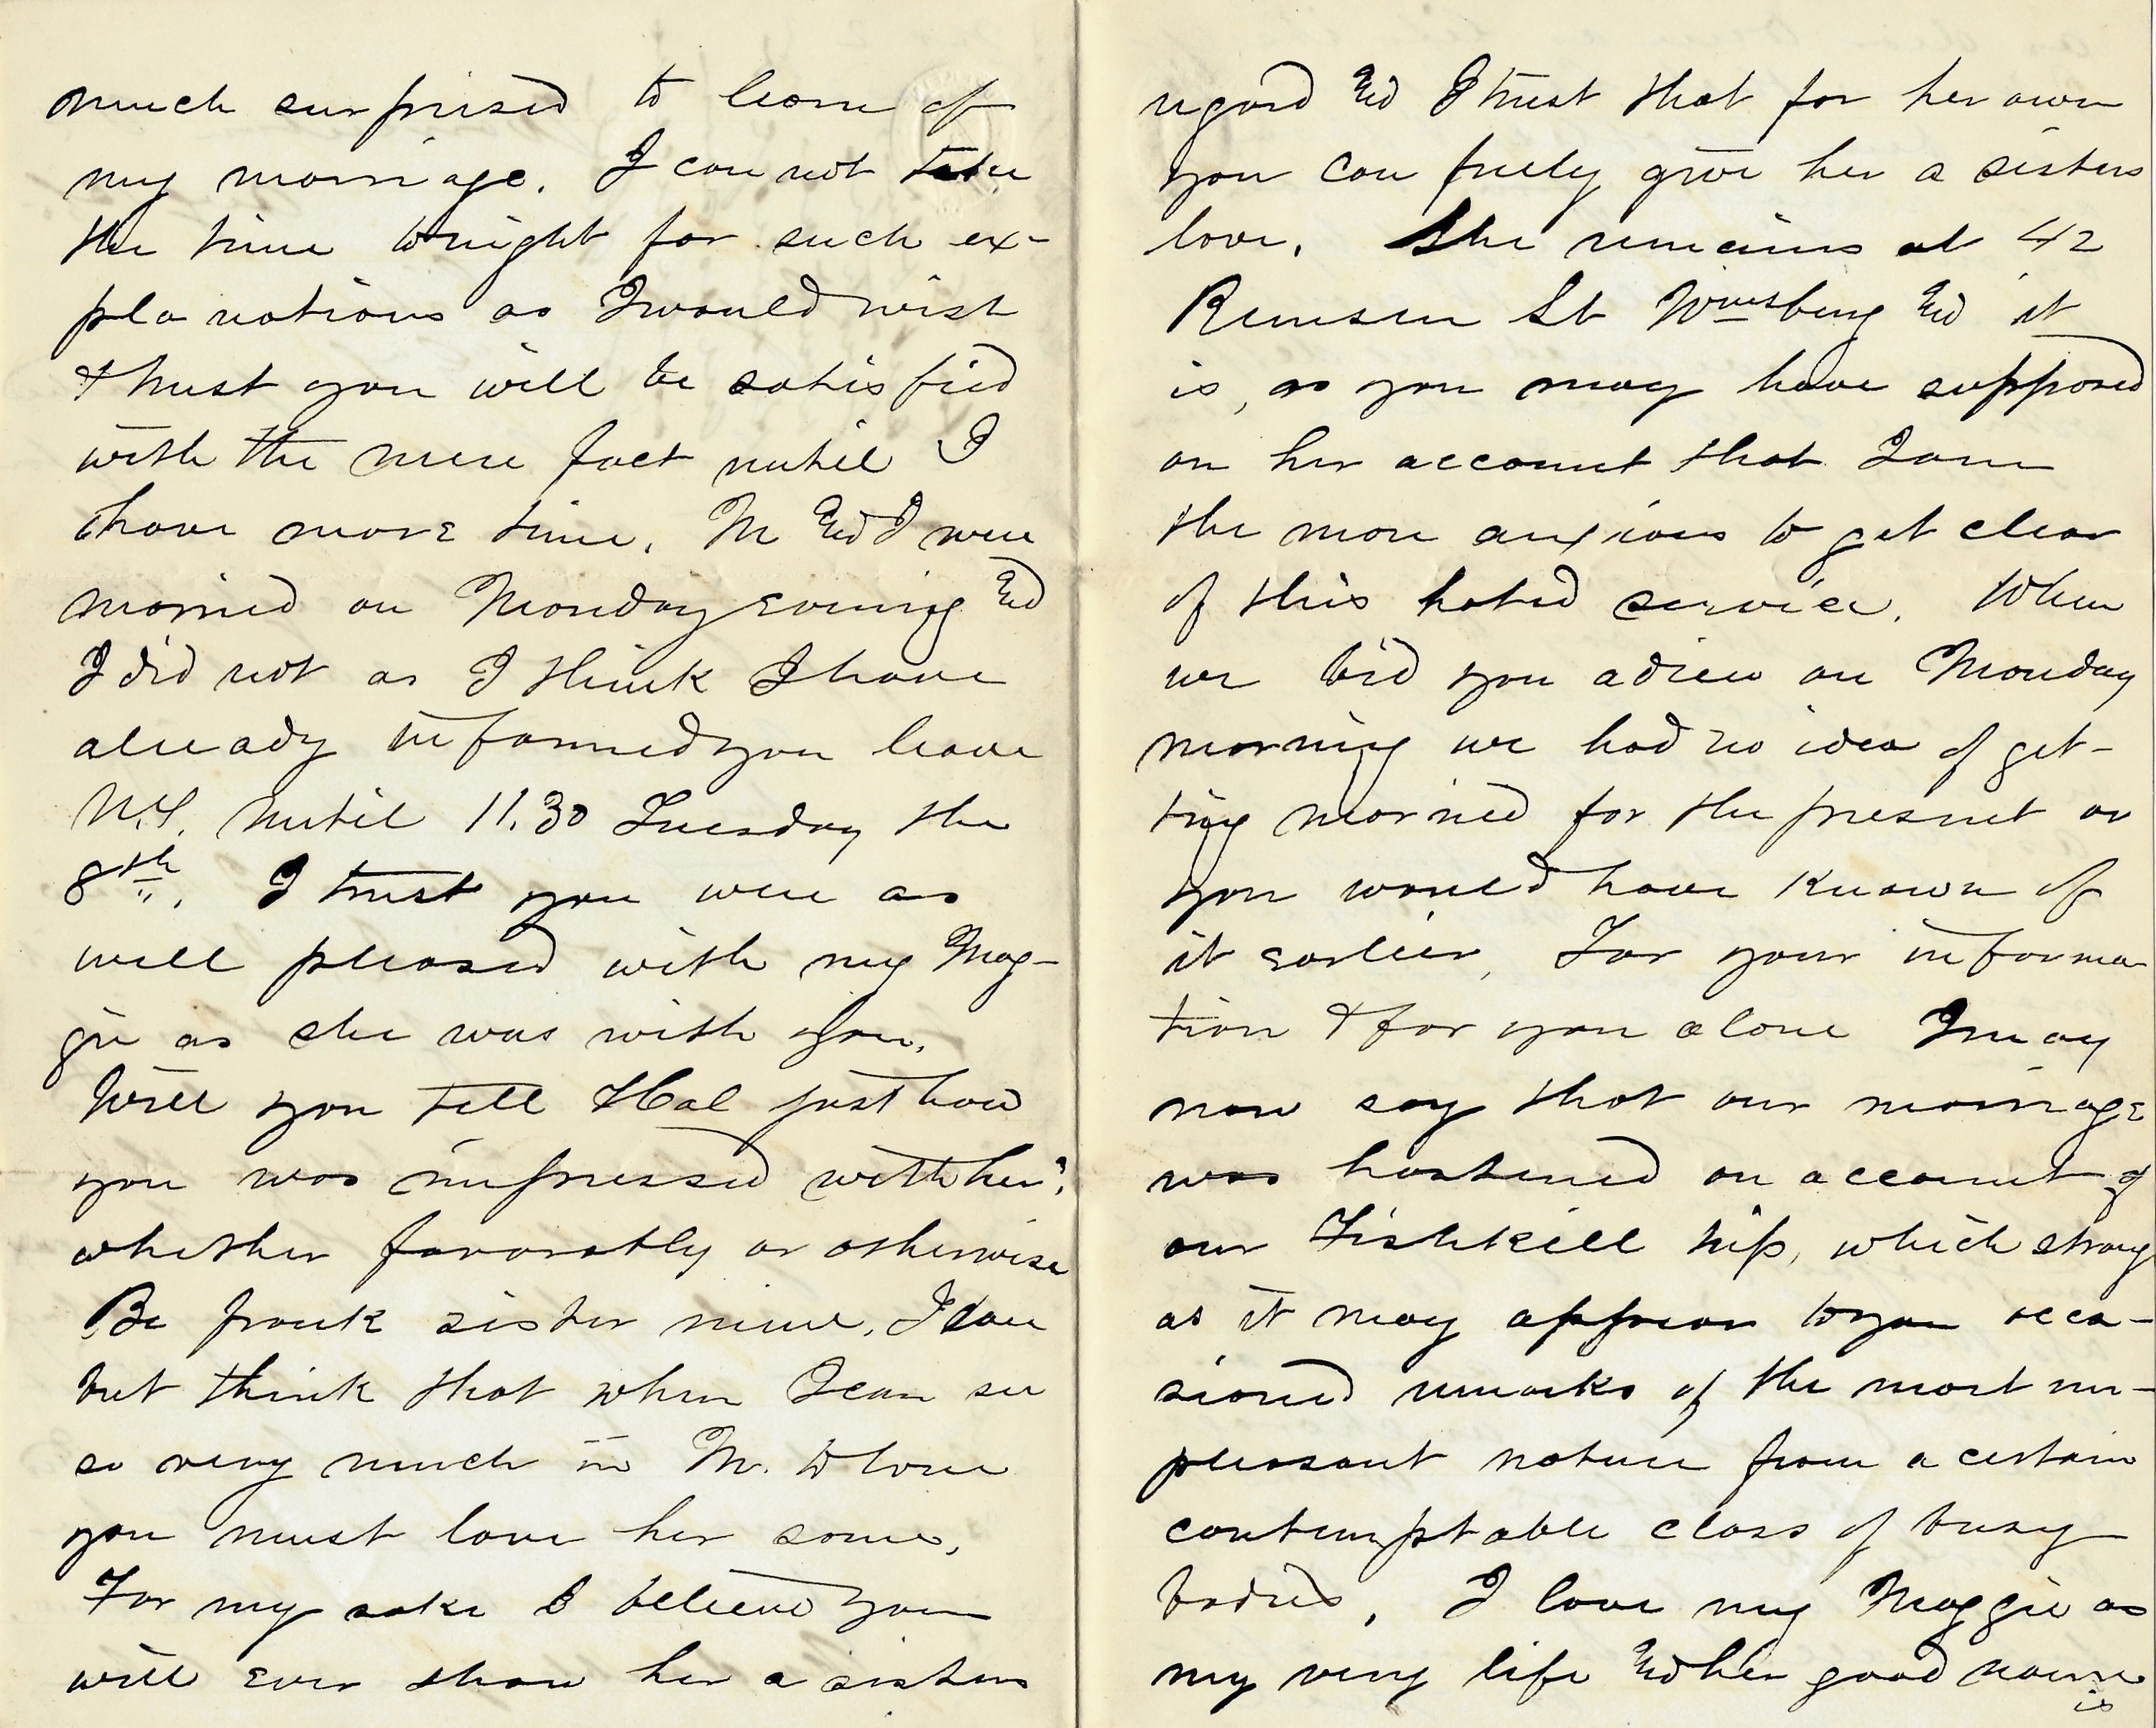 much surprised to learn of
my marriage. I can not take
the time tonight for such ex-
planations as I would wish
& trust you will be satisfied
with the mere fact until I
have more time. M and I were
married on Monday evening and
I did not as I think I have
already informed you leave
N.Y. until 11.30 Tuesday the
8th. I trust you were as
well pleased with my Mag-
gie as she was with you.
Will you tell Hal just how
you was impressed with her?
whether favorably or otherwise
Be frank sister mine. I can
but think that when I can see
so very much in M. to love
you must love her some.
For my sake I believe you
will ever show her a sisters
regard and I trust that for her own
you can freely give her a sisters
love. She remains at 42
Remsen St Wmsburg and it
is, as you may have supposed
on her account that I am
the more anxious to get clear
of this hated service. When
we bid you adieu on Monday
morning we had no idea of get-
ting married for the present or
you would have known of
it earlier. For your informa-
tion & for you alone I may
now say that our marriage
was hastened on account of
our Fishkill trip, which strang
as it may appear to you occa-
sioned remarks of the most un-
pleasant nature from a certain
contemptable class of busy
bodies. I love my Maggie as
my very life and her good name
is